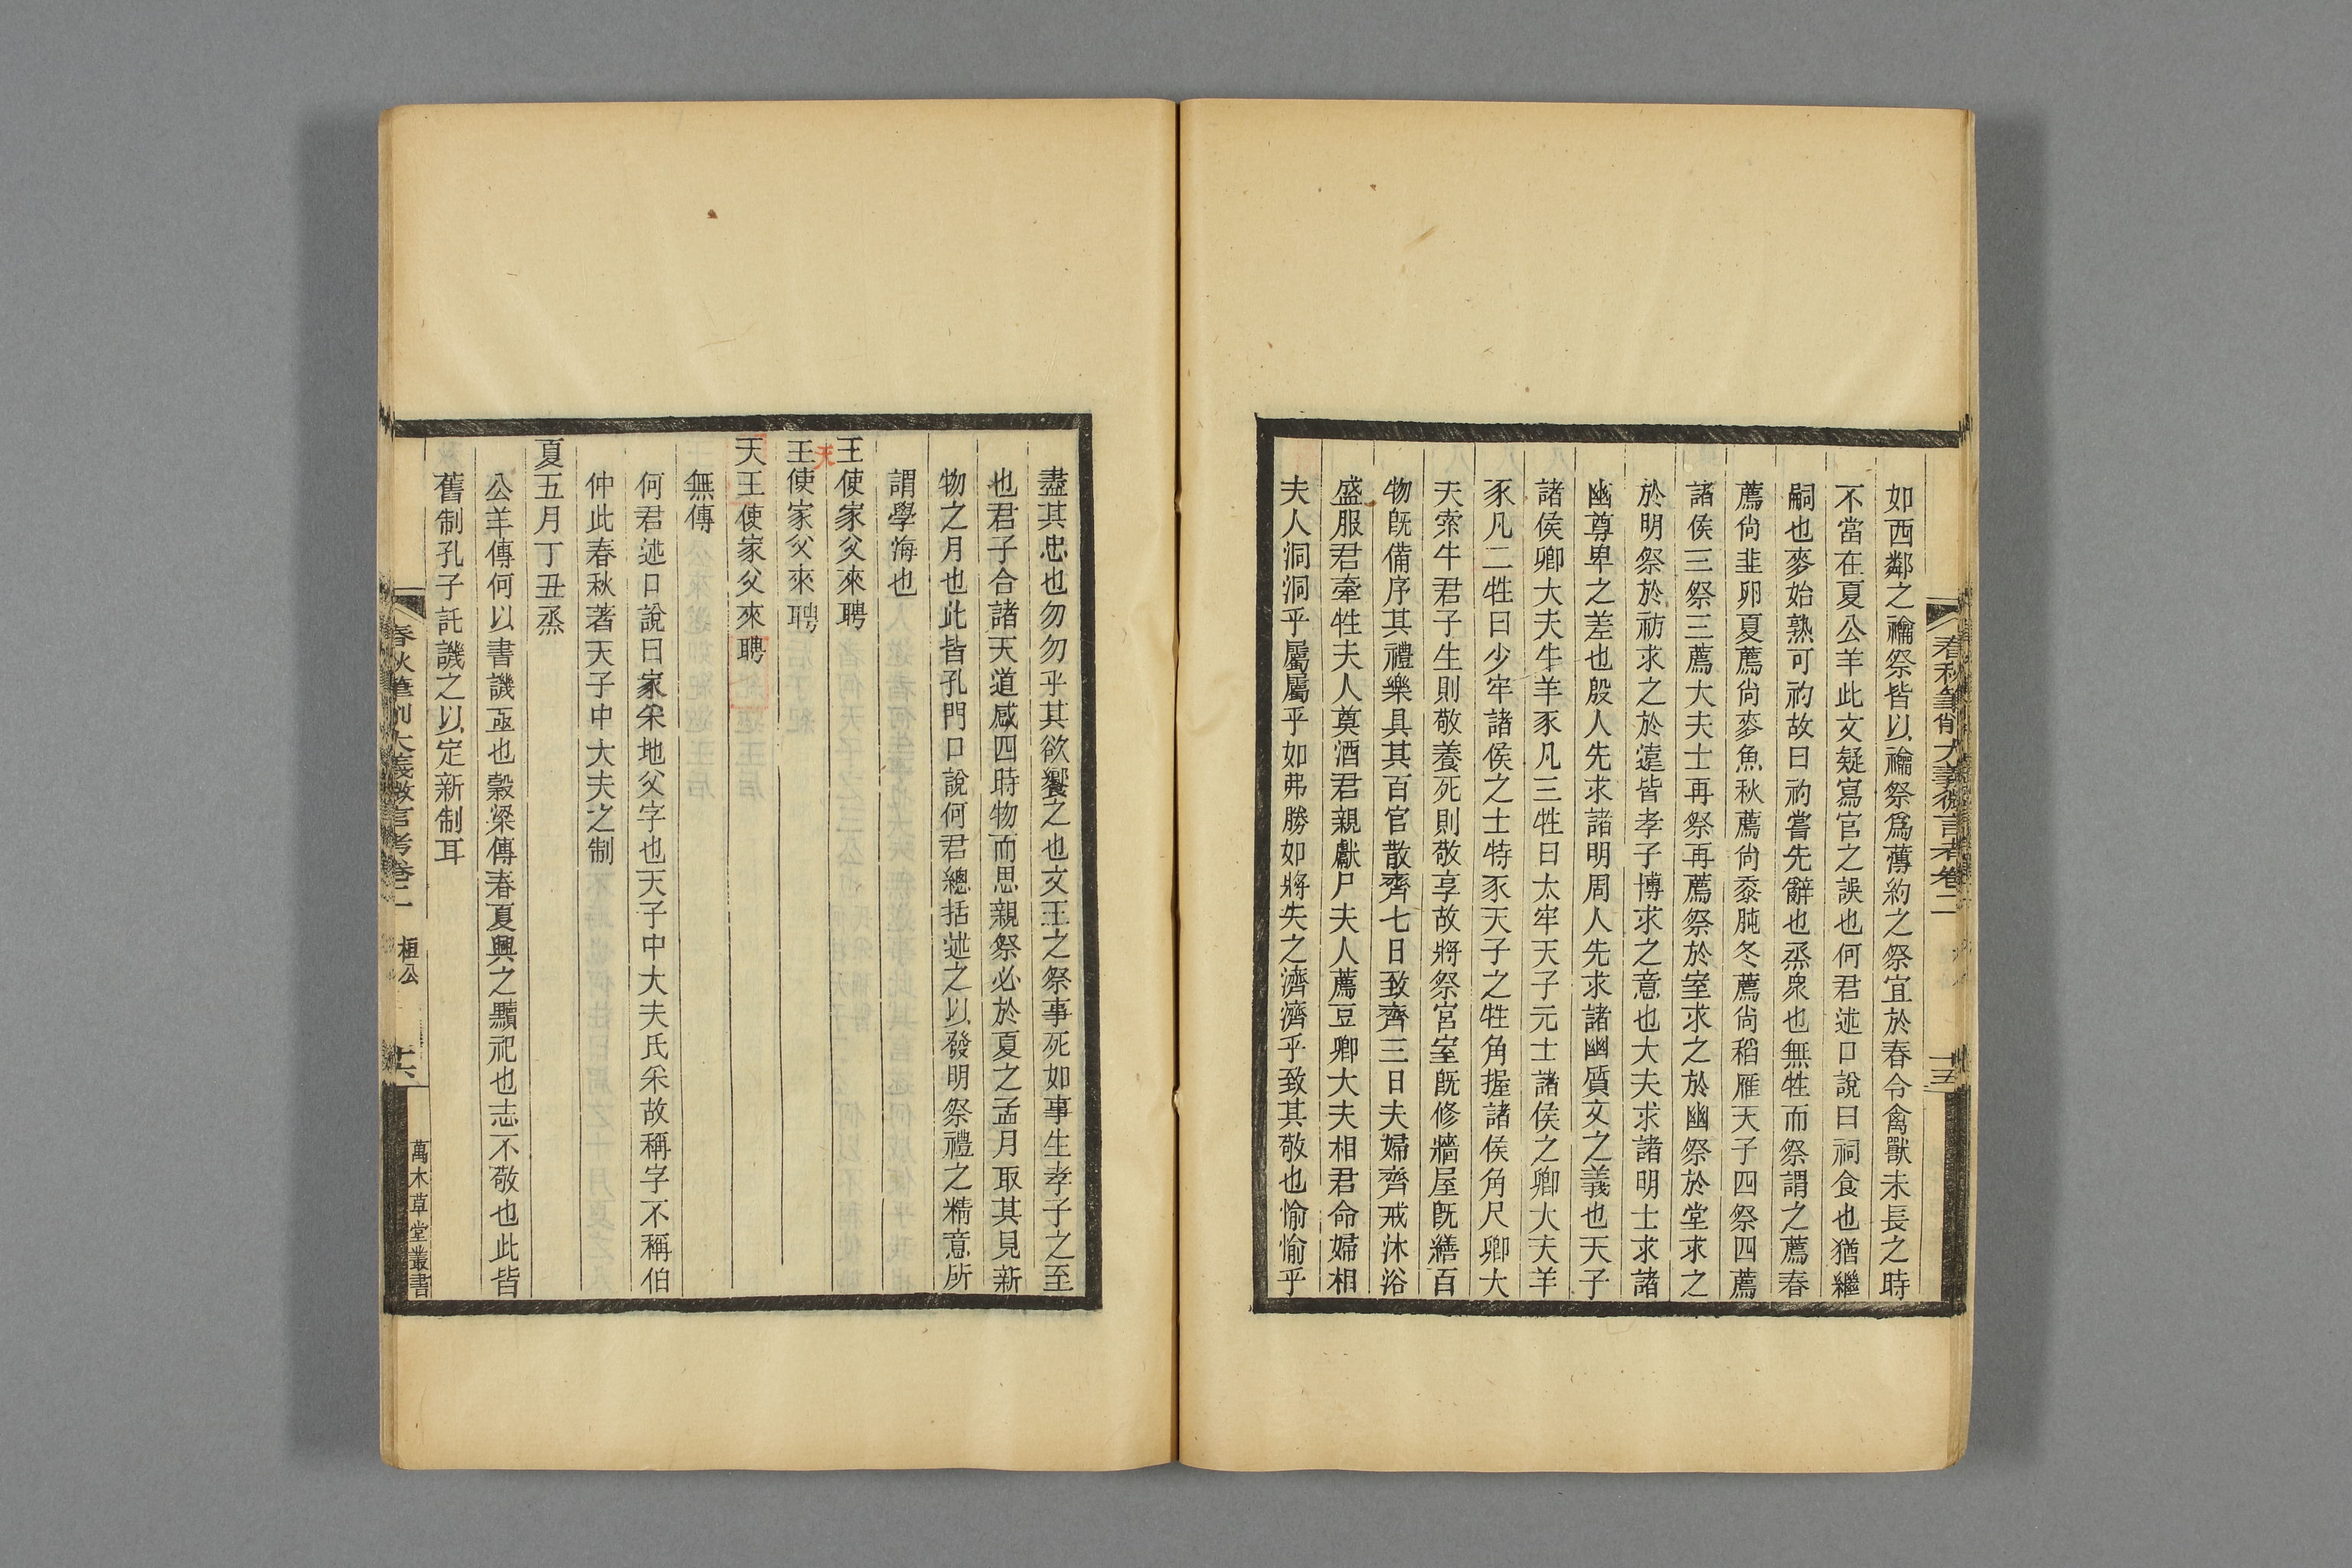 春秋筆削大義微言考卷二
十五
如西鄰之禴祭皆以禴祭爲薄約之祭宜於春令禽獸未長之時
不當在夏公羊此文疑寫官之誤也何君述口說曰祠食也猶繼
嗣也麥始熟可礿故曰礿嘗先辭也烝衆也無牲而祭謂之薦春
薦尙韭卵夏薦尙麥魚秋薦尙黍肫冬薦尙稻雁天子四祭四薦
諸侯三祭三薦大夫士再祭再薦祭於室求之於幽祭於堂求之
於明祭於祊求之於遠皆孝子博求之意也大夫求諸明士求諸
幽尊卑之差也殷人先求諸明周人先求諸幽質文之義也天子
諸侯卿大夫牛羊豕凡三牲曰太牢天子元士諸侯之卿大夫羊
豕凡二牲曰少牢諸侯之士特豕天子之牲角握諸侯角尺卿大
夫索牛君子生則敬養死則敬享故將祭宮室旣修牆屋旣繕百
物旣備序其禮樂具其百官散齊七日致齊三日夫婦齊戒沐浴
盛服君牽牲夫人奠酒君親獻尸夫人薦豆卿大夫相君命婦相
夫人洞洞乎屬屬乎如弗勝如將失之濟濟乎致其敬也愉愉乎
盡其忠也勿勿乎其欲饗之也文王之祭事死如事生孝子之至
也君子合諸天道感四時物而思親祭必於夏之孟月取其見新
物之月也此皆孔門口說何君總括述之以發明祭禮之精意所
謂學海也
王使家父來聘
天
王使家父來聘
天王使家父來聘
無傳
何君述口說曰家采地父字也天子中大夫氏采故稱字不稱伯
仲此春秋著天子中大夫之制
夏五月丁丑烝
公羊傳何以書譏亟也榖梁傳春夏興之黷祀也志不敬也此皆
舊制孔子託譏之以定新制耳
春秋筆削大義微言考卷二
桓公
十六
萬木草堂叢書